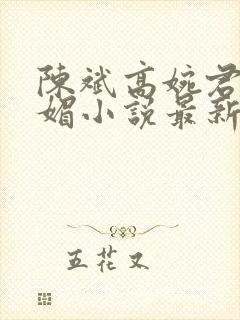 陳斌高婉君
媚小說最新
五花又